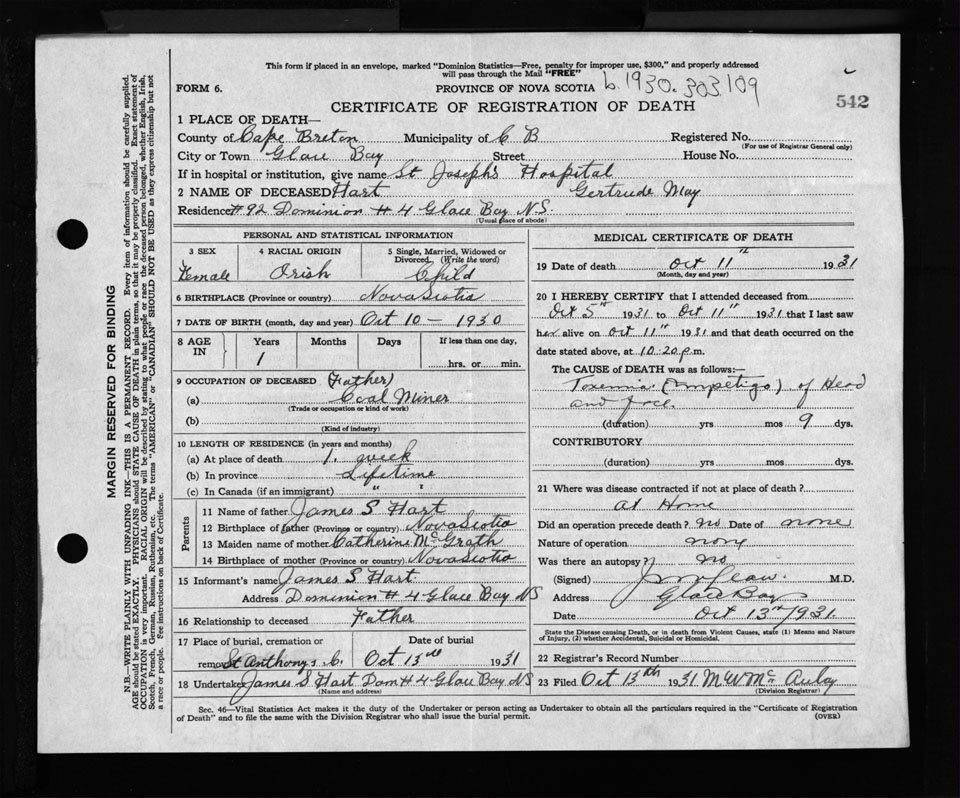 This form if placed in an envelope, marked "Dominion Statistics—Free, penalty for improper use, $300," and properly addressed
will pass through the Mail "FREE"
FORM 6.
PROVINCE OF NOVA SCOTIA
b. 1930. 303109
CERTIFICATE OF REGISTRATION OF DEATH
542
1 PLACE OF DEATH—
County of Cape Breton Municipality of C B Registered No.
(For use of Registrar General only)
City or Town Glace Bay Street House No.
If in hospital or institution, give name St Joseph's Hospital
2 NAME OF DECEASED Hart Gertrude May
Residence #92 Dominion #4 Glace Bay N.S.
(Usual place of abode)
PERSONAL AND STATISTICAL INFORMATION
3 SEX Female
4 RACIAL ORIGIN Irish
5 Single, Married, Widowed or
Divorced (Write the word)
Child
6 BIRTHPLACE (Province or country) Nova Scotia
7 DATE OF BIRTH (month, day and year) Oct 10 – 1930
8 AGE IN Years Months Days If less than one day,
1 hrs. or min.
9 OCCUPATION OF DECEASED (Father)
(a) Coal Miner
(Trade or occupation or kind of work)
(b)
(Kind of industry)
10 LENGTH OF RESIDENCE (in years and months)
(a) At place of death 1. week
(b) In province Lifetime
(c) In Canada (if an immigrant) " "
Parents
11 Name of father James S Hart
12 Birthplace of father (Province or country) Nova Scotia
13 Maiden name of mother Catherine McGrath
14 Birthplace of mother (Province or country) Nova Scotia
15 Informant's name James S Hart
Address Dominion #4 Glace Bay NS
16 Relationship to deceased Father
17 Place of burial, cremation or Date of burial
removal St Anthony's C. Oct 13th 1931
18 Undertaker James S Hart Dom #4 Glace Bay NS
(Name and address)
MEDICAL CERTIFICATE OF DEATH
19 Date of death Oct 11th 1931
(Month, day and year)
20 I HEREBY CERTIFY that I attended deceased from
Oct 5th 1931 to Oct 11th 1931 that I last saw
her alive on Oct 11th 1931 and that death occurred on
date stated above, at 10.20 p.m.
The CAUSE of DEATH was as follows:—
Toxemia (Impetigo) of Head
and face.
(duration) yrs mos 9 dys.
CONTRIBUTORY
(duration) yrs mos dys.
21 Where was disease contracted if not at place of death?
at Home
Did an operation precede death? no Date of none
Nature of operation none
Was there an autopsy? no
(Signed) M.D.
Address Glace Bay
Date Oct 13th 1931
State the Disease causing Death, or in death from Violent Causes, state (1) Means and Nature
of Injury, (2) whether Accidental, Suicidal or Homicidal.
22 Registrar's Record Number
23 Filed Oct 13th 1931 M W McAulay
(Division Registrar)
Sec. 46—Vital Statistics Act makes it the duty of the Undertaker or person acting as Undertaker to obtain all the particulars required in the "Certificate of Registration
of Death" and to file the same with the Division Registrar who shall issue the burial permit.
(OVER)
MARGIN RESERVED FOR BINDING
N.B.—WRITE PLAINLY WITH UNFADING INK—THIS IS A PERMANENT RECORD. Every item of information should be carefully supplied.
AGE should be stated EXACTLY. PHYSICIANS should STATE CAUSE OF DEATH in plain terms, so that it may be properly classified. Exact statement of
OCCUPATION is very important. RACIAL ORIGIN will be described by stating to what people or race the deceased person belonged, whether English, Irish,
Scotch, French, German, Russian, Ruthenian, etc. The terms "AMERICAN" or "CANADIAN" SHOULD NOT BE USED as they express citizenship but not
a race or people. See instructions on back of Certificate.